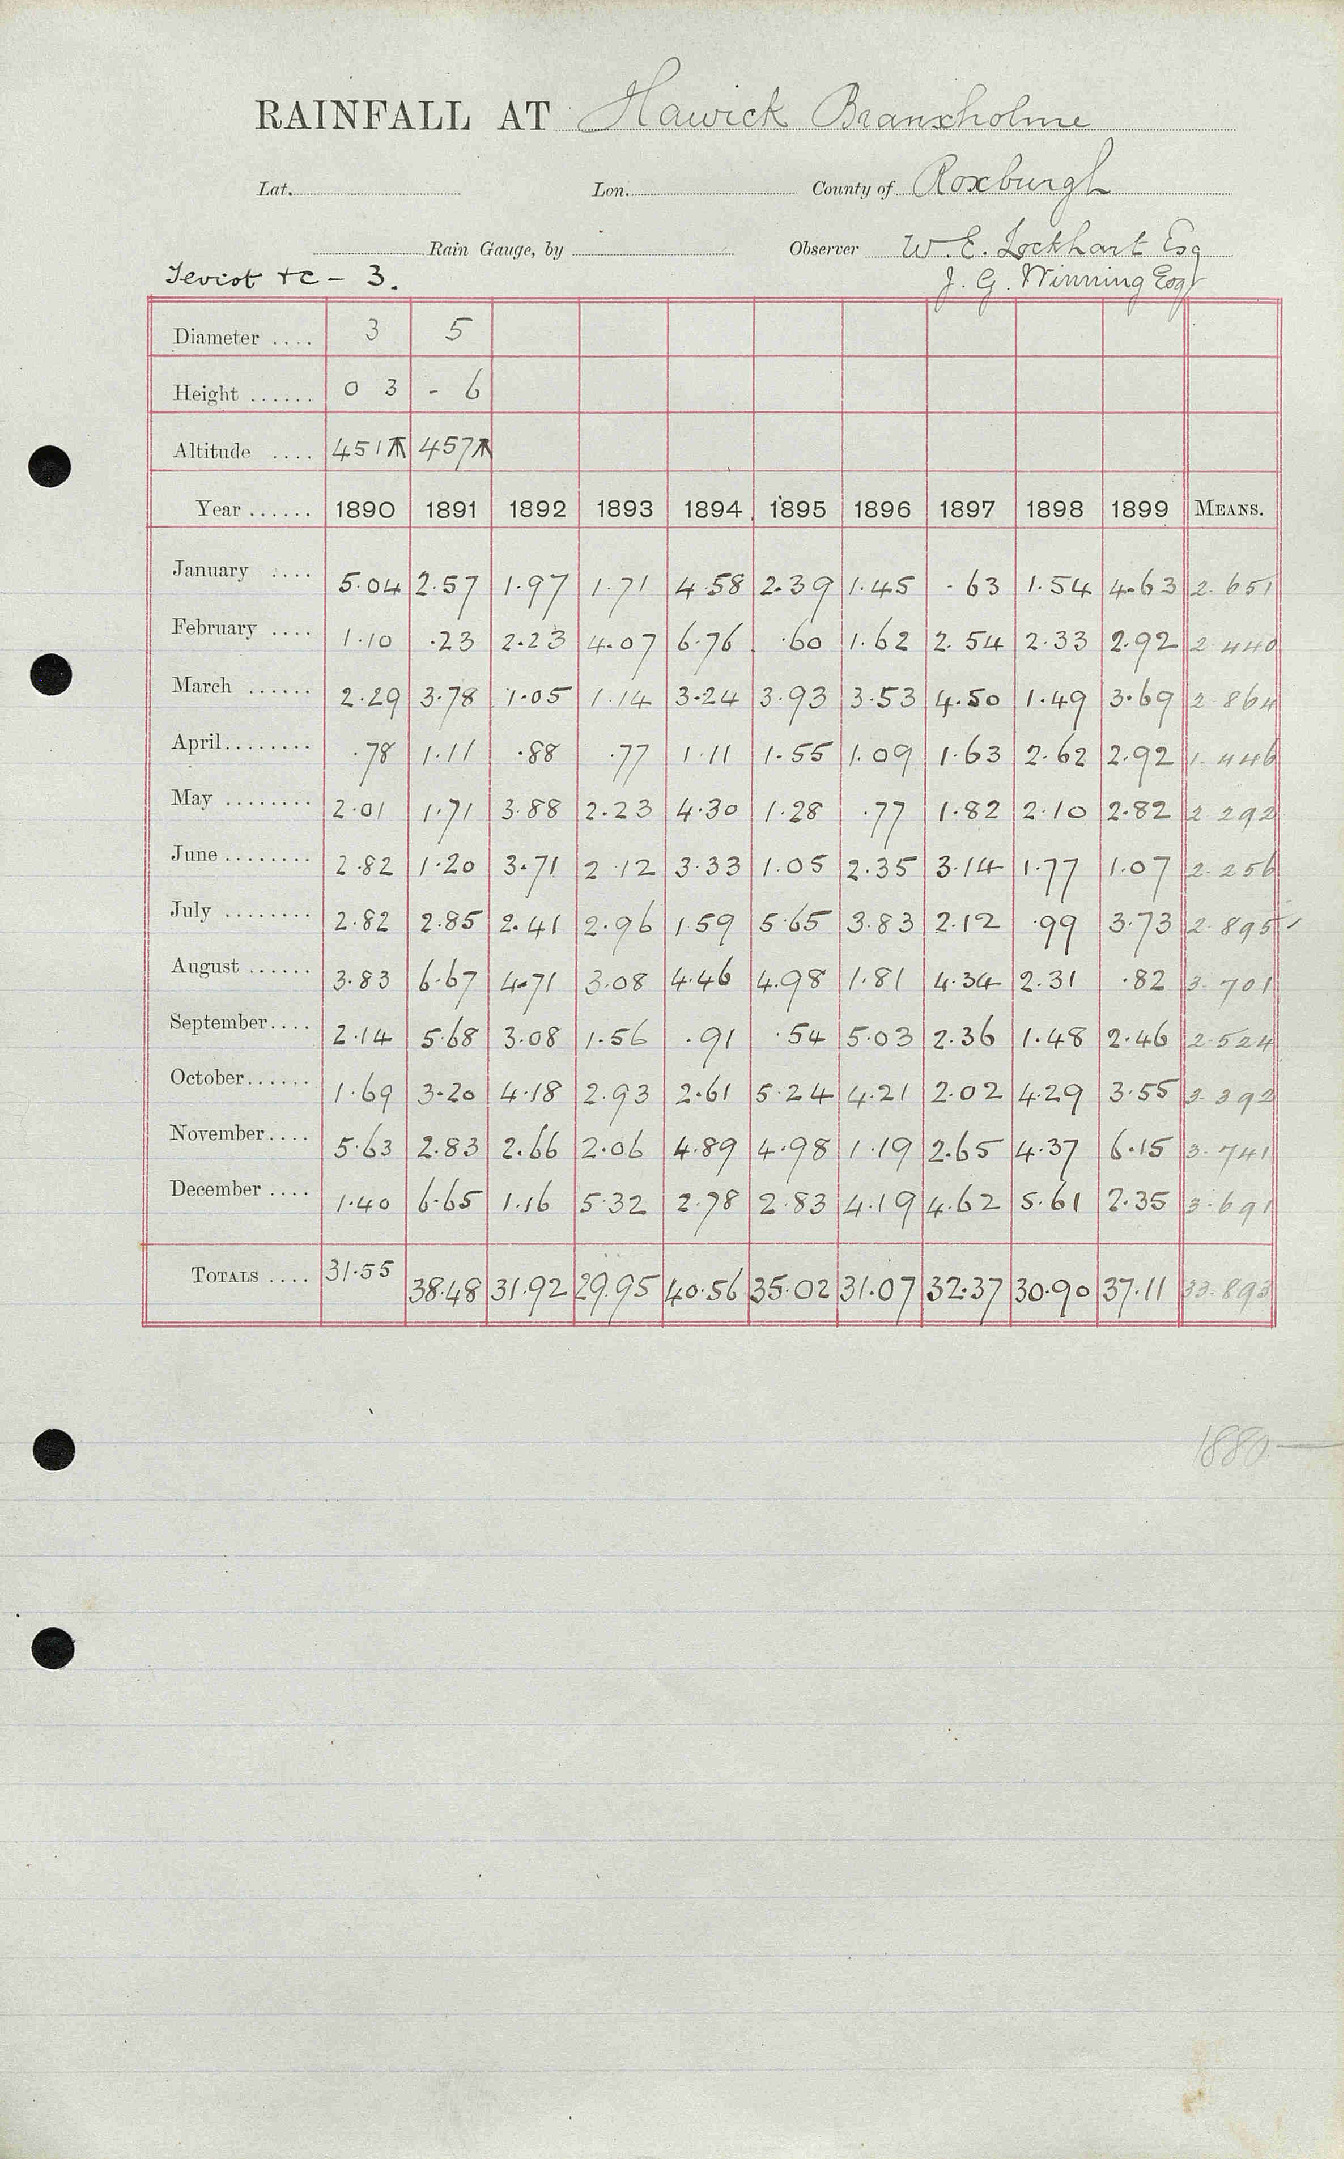 RAINFALL AT Hawick Branxholme
Lat. Lon. County of Roxburgh
Rain Gauge, by Observer W. E. Lockhart Esq
Teviot &c - 3. J. G. Winning Esq
Diameter .... 3 5
Height ...... 0 3 - 6
Altitude .... 451 457
Year ...... 1890 1891 1892 1893 1894 1895 1896 1897 1898 1899 MEANS.
January .... 5.04 2.57 1.97 1.71 4.58 2.39 1.45 .63 1.54 4.63 2.651
February .... 1.10 .23 2.23 4.07 6.76 .60 1.62 2.54 2.33 2.92 2.440
March ...... 2.29 3.78 1.05 1.14 3.24 3.93 3.53 4.50 1.49 3.69 2.864
April........ .78 1.11 .88 .77 1.11 1.55 1.09 1.63 2.62 2.92 1.446
May ........ 2.01 1.71 3.88 2.23 4.30 1.28 .77 1.82 2.10 2.82 2.292
June ........ 2.82 1.20 3.71 2.12 3.33 1.05 2.35 3.14 1.77 1.07 2.256
July ........ 2.82 2.85 2.41 2.96 1.59 5.65 3.83 2.12 .99 3.73 2.895
August ...... 3.83 6.67 4.71 3.08 4.46 4.98 1.81 4.34 2.31 .82 3.701
September.... 2.14 5.68 3.08 1.56 .91 .54 5.03 2.36 1.48 2.46 2.524
October...... 1.69 3.20 4.18 2.93 2.61 5.24 4.21 2.02 4.29 3.55 3.392
November.... 5.63 2.83 2.66 2.06 4.89 4.98 1.19 2.65 4.37 6.15 3.741
December .... 1.40 6.65 1.16 5.32 2.78 2.83 4.19 4.62 5.61 2.35 3.691
TOTALS .... 31.55 38.48 31.92 29.95 40.56 35.02 31.07 32.37 30.90 37.11 33.893
1880 —